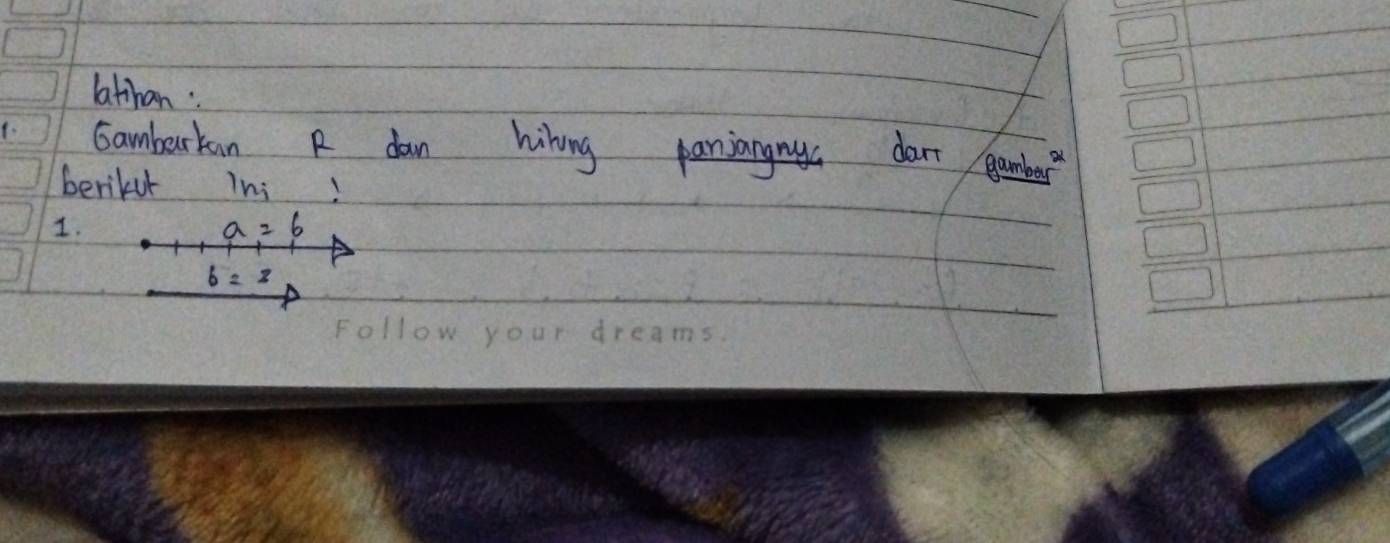 latihan :
1. Gambarkan R dan hitung panjangnya dari gambar²
berikut ini !
1. a = 6
b = 3
Follow your dreams.